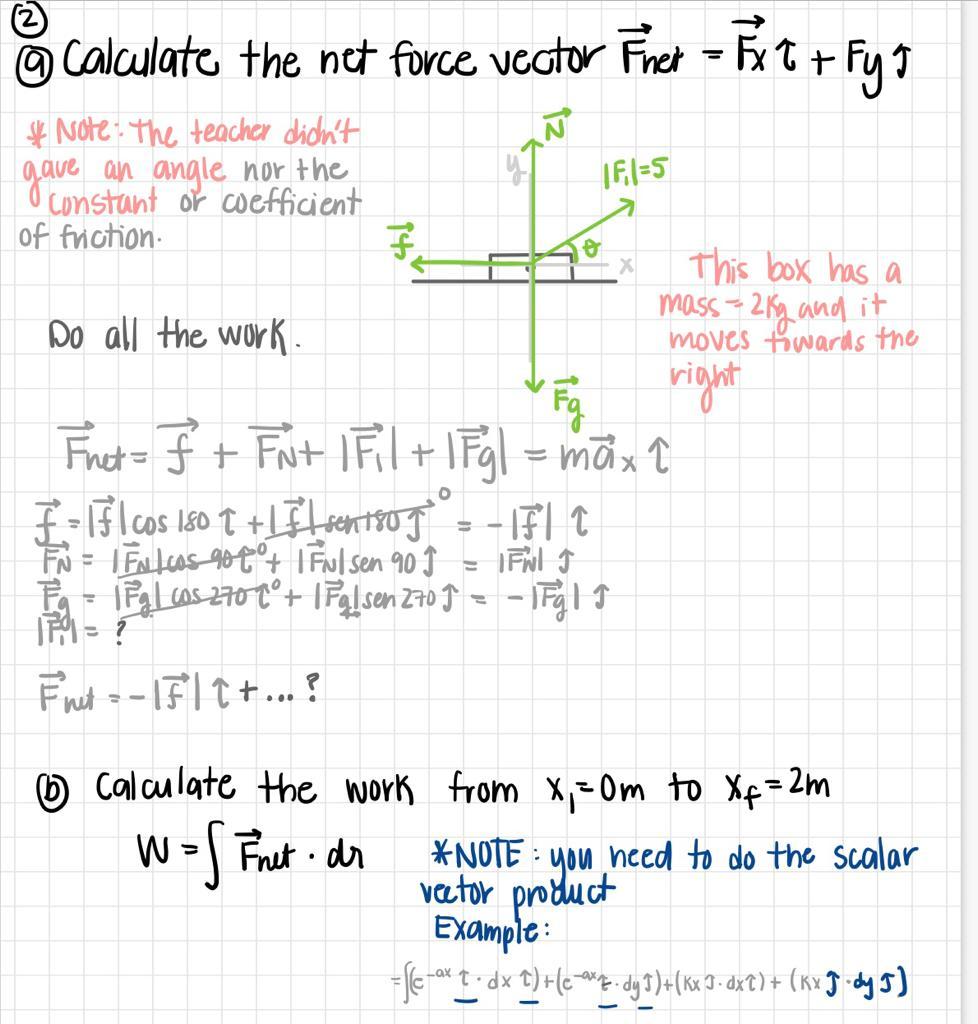 ②
ⓐ Calculate the net force vector F⃗net = F⃗x î + Fy ĵ
* Note: The teacher didn't
gave an angle nor the
constant or coefficient
of friction.
N⃗
y
|F⃗₁|=5
f⃗
θ
x
F⃗g
This box has a
mass = 2Kg and it
moves towards the
right
Do all the work.
F⃗net = f⃗ + F⃗N + |F⃗₁| + |F⃗g| = ma⃗x î
f⃗ = |f⃗| cos 180 î + |f⃗| sen 180 ĵ 0 = -|f⃗| î
F⃗N = |F⃗N| cos 90 î 0 + |F⃗N| sen 90 ĵ = |F⃗N| ĵ
F⃗g = |F⃗g| cos 270 î 0 + |F⃗g| sen 270 ĵ = -|F⃗g| ĵ
|F⃗₁| = ?
F⃗net = -|f⃗| î + ... ?
ⓑ Calculate the work from x₁=0m to xf=2m
W = ∫ F⃗net · dr
*NOTE: you need to do the scalar
vector product
Example:
=∫(e^-ax î · dx î)+(e^-ax î · dy ĵ)+(Kx ĵ · dx î) + (Kx ĵ · dy ĵ)